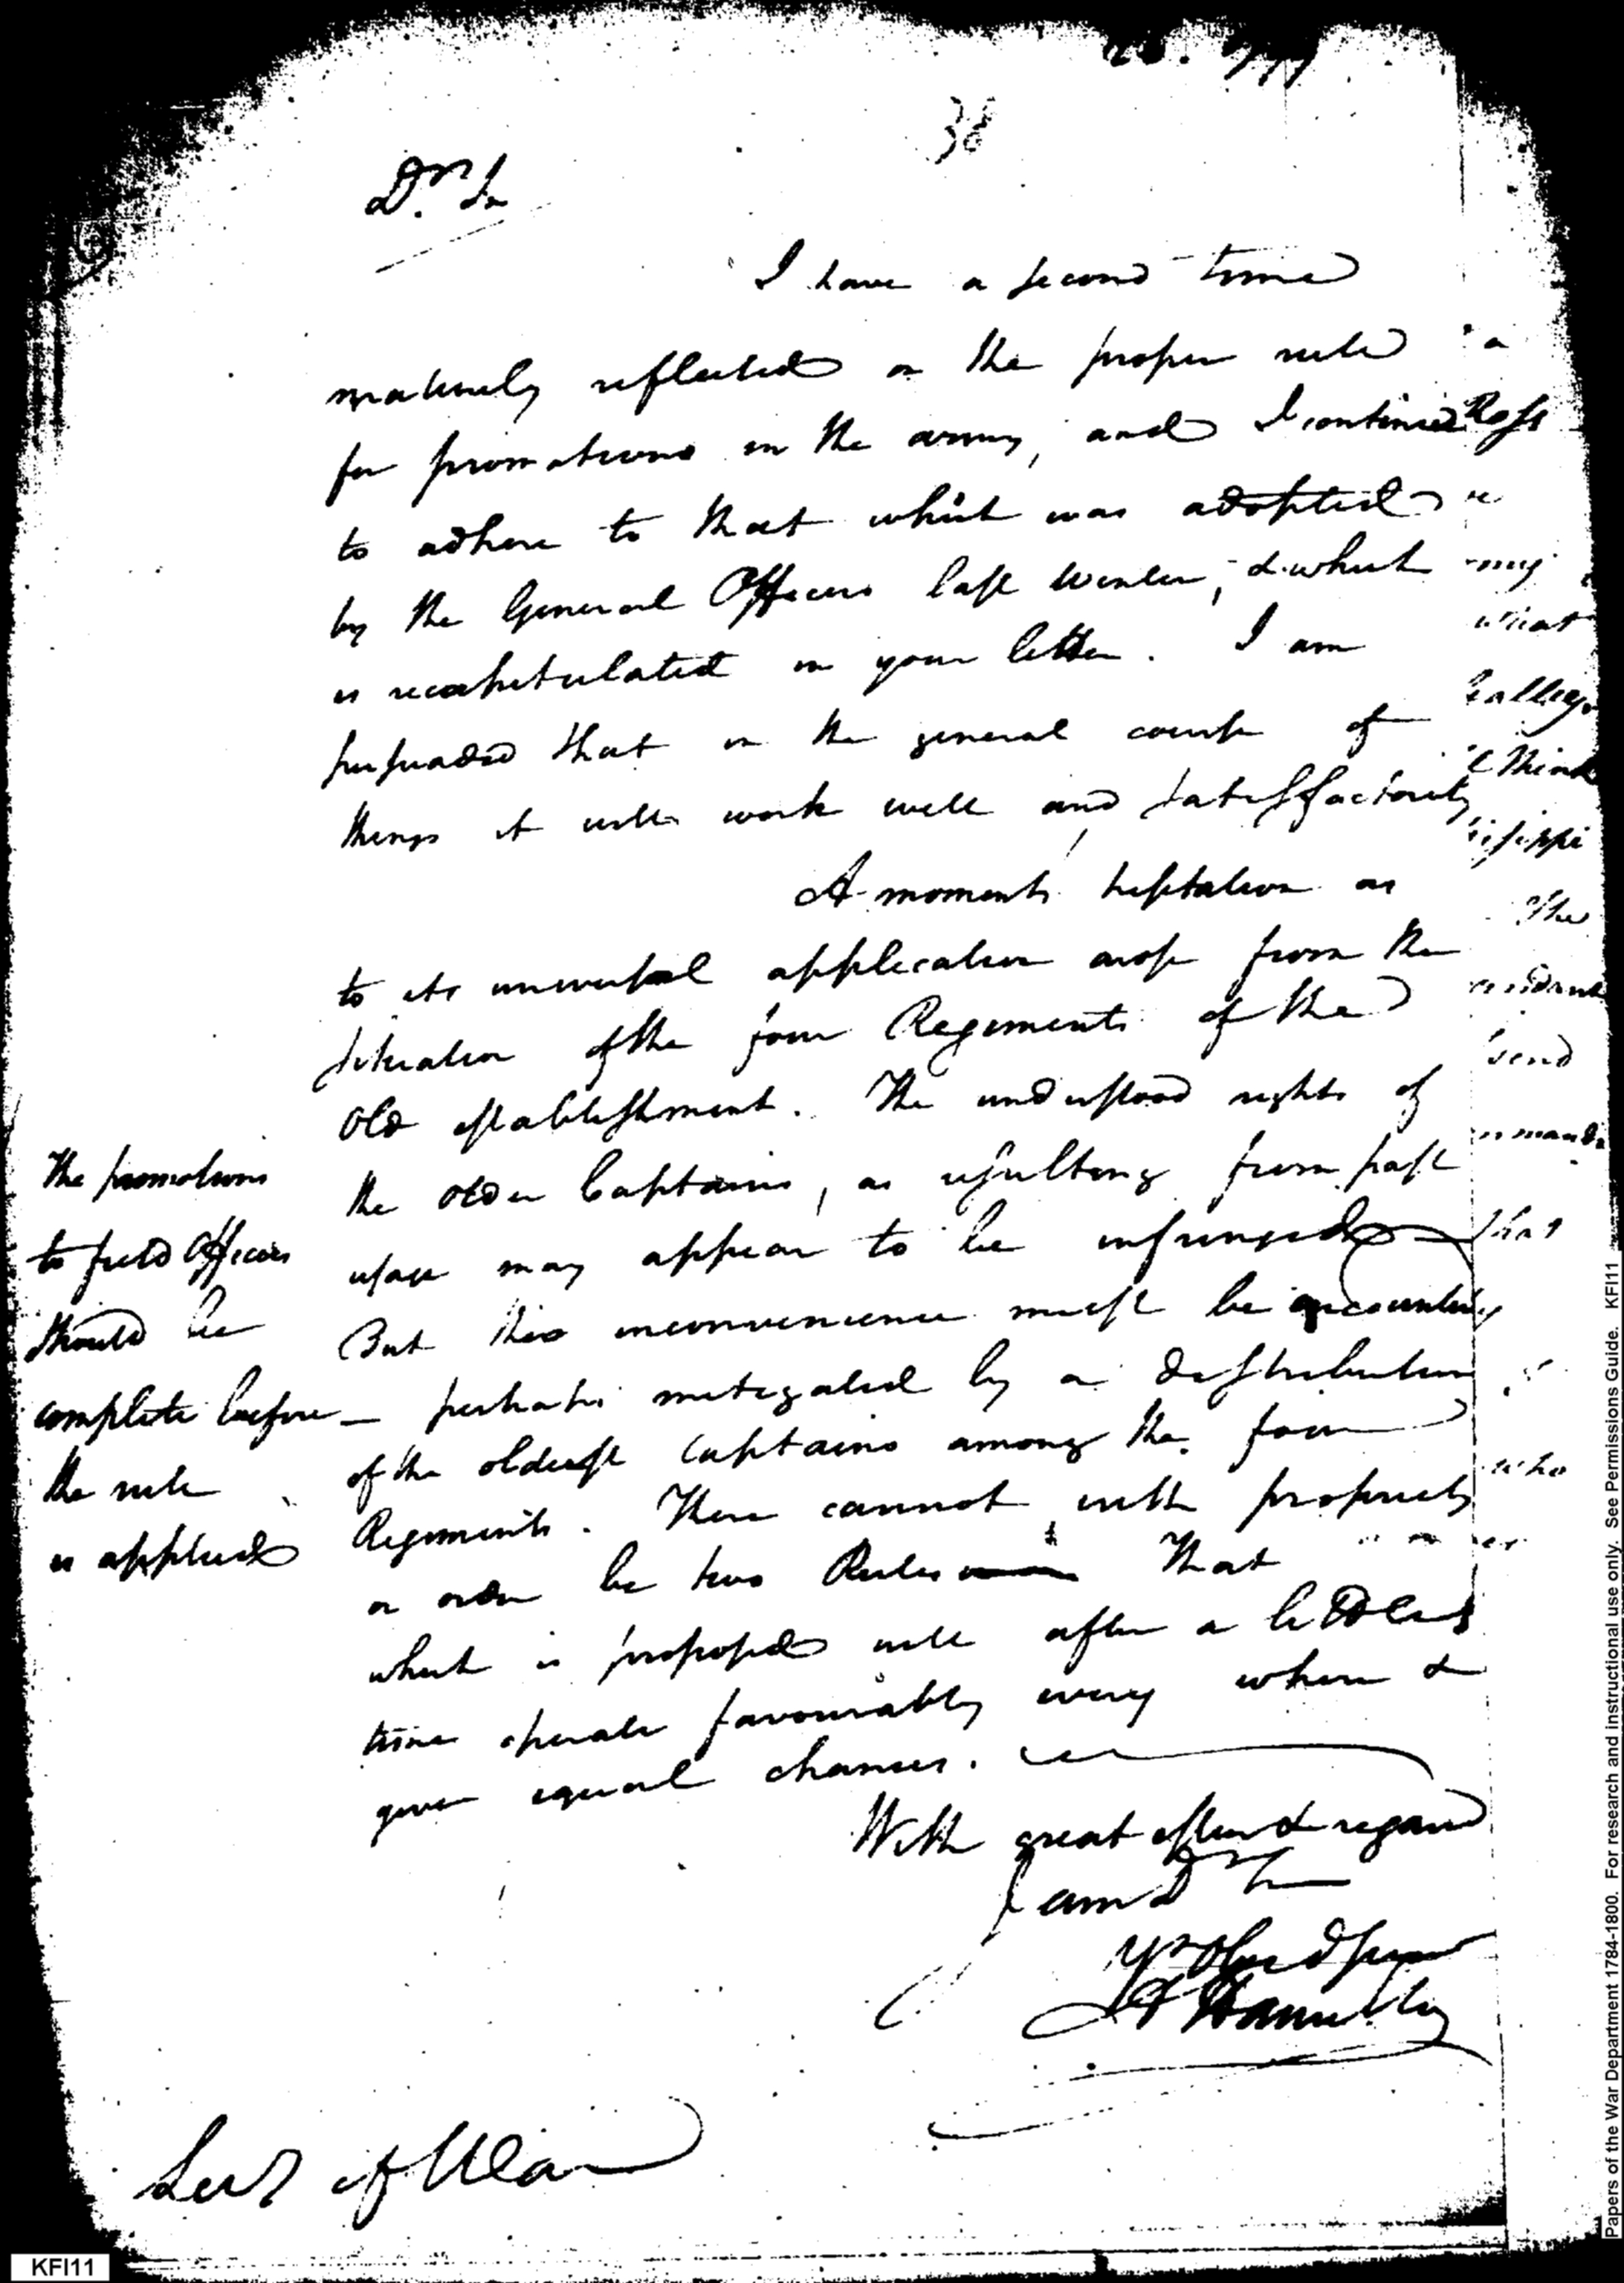 38
Dr. Sir
I have a second time
maturely reflected on the proper rule
for promotions in the army, and I continue
to adhere to that which was adopted
by the General Officers last Winter, & which
is recapitulated in your letter. I am
persuaded that in the general course of
things it will work well and satisfactorily
A moments hesitation as
to its universal application arose from the
situation of the four Regiments of the
old establishment. The understood rights of
the older Captains, as resulting from past
usage may appear to be infringed
But this inconvenience must be encountered
perhaps mitigated by a distribution
of the oldest Captains among the four
Regiments. There cannot with propriety
or order be two Rules That
which is proposed will after a little
time operate favourably every where &
give equal chances.
With great esteem & regard
I am Dr Sir
Yr Obed Servt
A Hamilton
Secy of War
The promotions
to field Officers
should be
complete before
the rule
is applied
a
Ross
my
what
think
The
send
that
who
KFI11
Papers of the War Department 1784-1800. For research and instructional use only. See Permissions Guide. KFI11